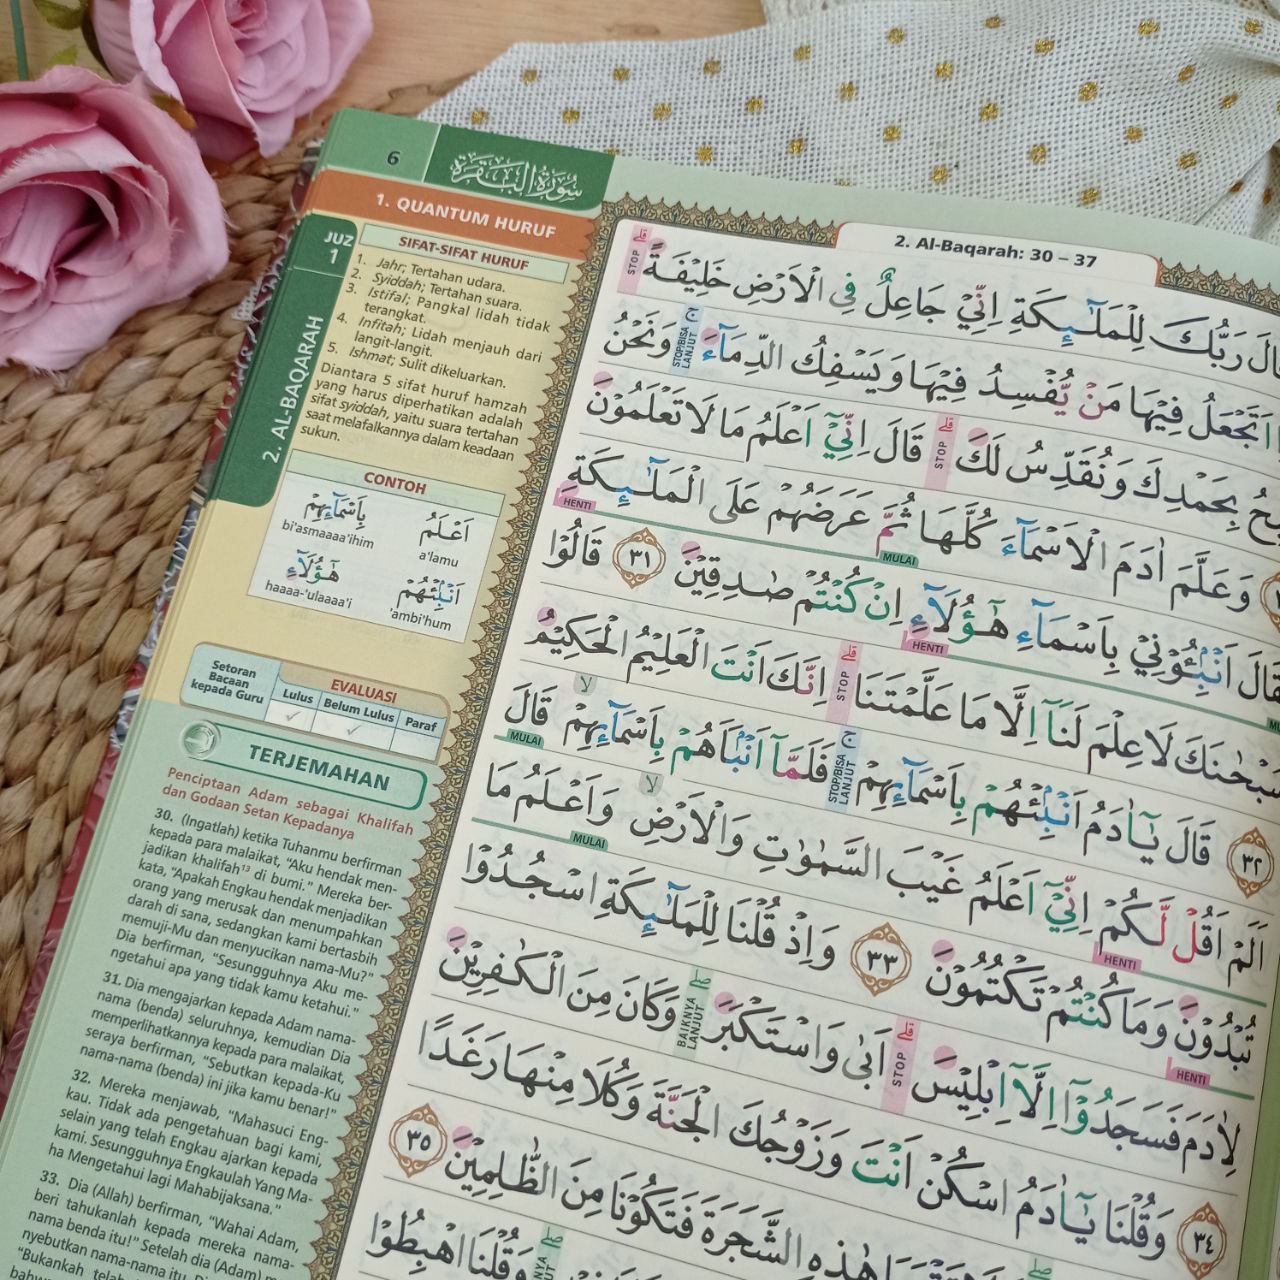 6
سُورَةُ الْبَقَرَةِ
1. QUANTUM HURUF
JUZ
1
2. AL-BAQARAH
SIFAT-SIFAT HURUF
1. Jahr; Tertahan udara.
2. Syiddah; Tertahan suara.
3. Istifal; Pangkal lidah tidak
terangkat.
4. Infitah; Lidah menjauh dari
langit-langit.
5. Ishmat; Sulit dikeluarkan.
Diantara 5 sifat huruf hamzah
yang harus diperhatikan adalah
sifat syiddah, yaitu suara tertahan
saat melafalkannya dalam keadaan
sukun.
CONTOH
بِاَسْمَاۤىِٕهِمْ اَعْلَمُ
bi'asmaaaa'ihim a'lamu
هٰٓؤُلَاۤءِ اَنْۢبِئْهُمْ
haaaa-'ulaaaa'i 'ambi'hum
Setoran
Bacaan
kepada Guru
EVALUASI
Lulus Belum Lulus Paraf
TERJEMAHAN
Penciptaan Adam sebagai Khalifah
dan Godaan Setan Kepadanya
30. (Ingatlah) ketika Tuhanmu berfirman
kepada para malaikat, "Aku hendak men-
jadikan khalifah¹³ di bumi." Mereka ber-
kata, "Apakah Engkau hendak menjadikan
orang yang merusak dan menumpahkan
darah di sana, sedangkan kami bertasbih
memuji-Mu dan menyucikan nama-Mu?"
Dia berfirman, "Sesungguhnya Aku me-
ngetahui apa yang tidak kamu ketahui."
31. Dia mengajarkan kepada Adam nama-
nama (benda) seluruhnya, kemudian Dia
memperlihatkannya kepada para malaikat,
seraya berfirman, "Sebutkan kepada-Ku
nama-nama (benda) ini jika kamu benar!"
32. Mereka menjawab, "Mahasuci Eng-
kau. Tidak ada pengetahuan bagi kami,
selain yang telah Engkau ajarkan kepada
kami. Sesungguhnya Engkaulah Yang Ma-
ha Mengetahui lagi Mahabijaksana."
33. Dia (Allah) berfirman, "Wahai Adam,
beri tahukanlah kepada mereka nama-
nama benda itu!" Setelah dia (Adam) m
nyebutkan nama-nama itu, Di
"Bukankah telah
2. Al-Baqarah: 30 – 37
رَبُّكَ لِلْمَلٰۤىِٕكَةِ اِنِّيْ جَاعِلٌ فِى الْاَرْضِ خَلِيْفَةً ۗ STOP
اَتَجْعَلُ فِيْهَا مَنْ يُّفْسِدُ فِيْهَا وَيَسْفِكُ الدِّمَاۤءَۚ STOP/BISA LANJUT وَنَحْنُ
بِحَمْدِكَ وَنُقَدِّسُ لَكَ ۗ STOP قَالَ اِنِّيْٓ اَعْلَمُ مَا لَا تَعْلَمُوْنَ
وَعَلَّمَ اٰدَمَ الْاَسْمَاۤءَ كُلَّهَا ثُمَّ عَرَضَهُمْ عَلَى الْمَلٰۤىِٕكَةِ
MULAI HENTI
اَنْۢبِـُٔوْنِيْ بِاَسْمَاۤءِ هٰٓؤُلَاۤءِ اِنْ كُنْتُمْ صٰدِقِيْنَ ٣١ قَالُوْا
HENTI
سُبْحٰنَكَ لَا عِلْمَ لَنَآ اِلَّا مَا عَلَّمْتَنَا ۗ STOP اِنَّكَ اَنْتَ الْعَلِيْمُ الْحَكِيْمُ
٣٢ قَالَ يٰٓاٰدَمُ اَنْۢبِئْهُمْ بِاَسْمَاۤىِٕهِمْ ۚ STOP/BISA LANJUT فَلَمَّآ اَنْۢبَاَهُمْ بِاَسْمَاۤىِٕهِمْۙ قَالَ
MULAI
اَلَمْ اَقُلْ لَّكُمْ اِنِّيْٓ اَعْلَمُ غَيْبَ السَّمٰوٰتِ وَالْاَرْضِۙ وَاَعْلَمُ مَا
HENTI MULAI
تُبْدُوْنَ وَمَا كُنْتُمْ تَكْتُمُوْنَ ٣٣ وَاِذْ قُلْنَا لِلْمَلٰۤىِٕكَةِ اسْجُدُوْا
HENTI
لِاٰدَمَ فَسَجَدُوْٓا اِلَّآ اِبْلِيْسَۗ STOP اَبٰى وَاسْتَكْبَرَۖ BAIKNYA LANJUT وَكَانَ مِنَ الْكٰفِرِيْنَ
٣٤ وَقُلْنَا يٰٓاٰدَمُ اسْكُنْ اَنْتَ وَزَوْجُكَ الْجَنَّةَ وَكُلَا مِنْهَا رَغَدًا
هٰذِهِ الشَّجَرَةَ فَتَكُوْنَا مِنَ الظّٰلِمِيْنَ ٣٥
وَقُلْنَا اهْبِطُوْا